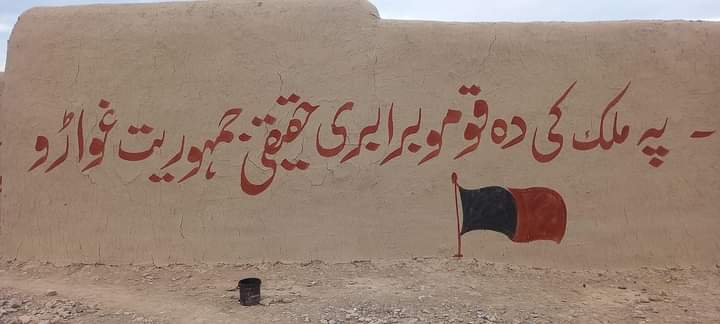 - په ملک کی ده قومو برابری حقیقی جمہوریت غواړو